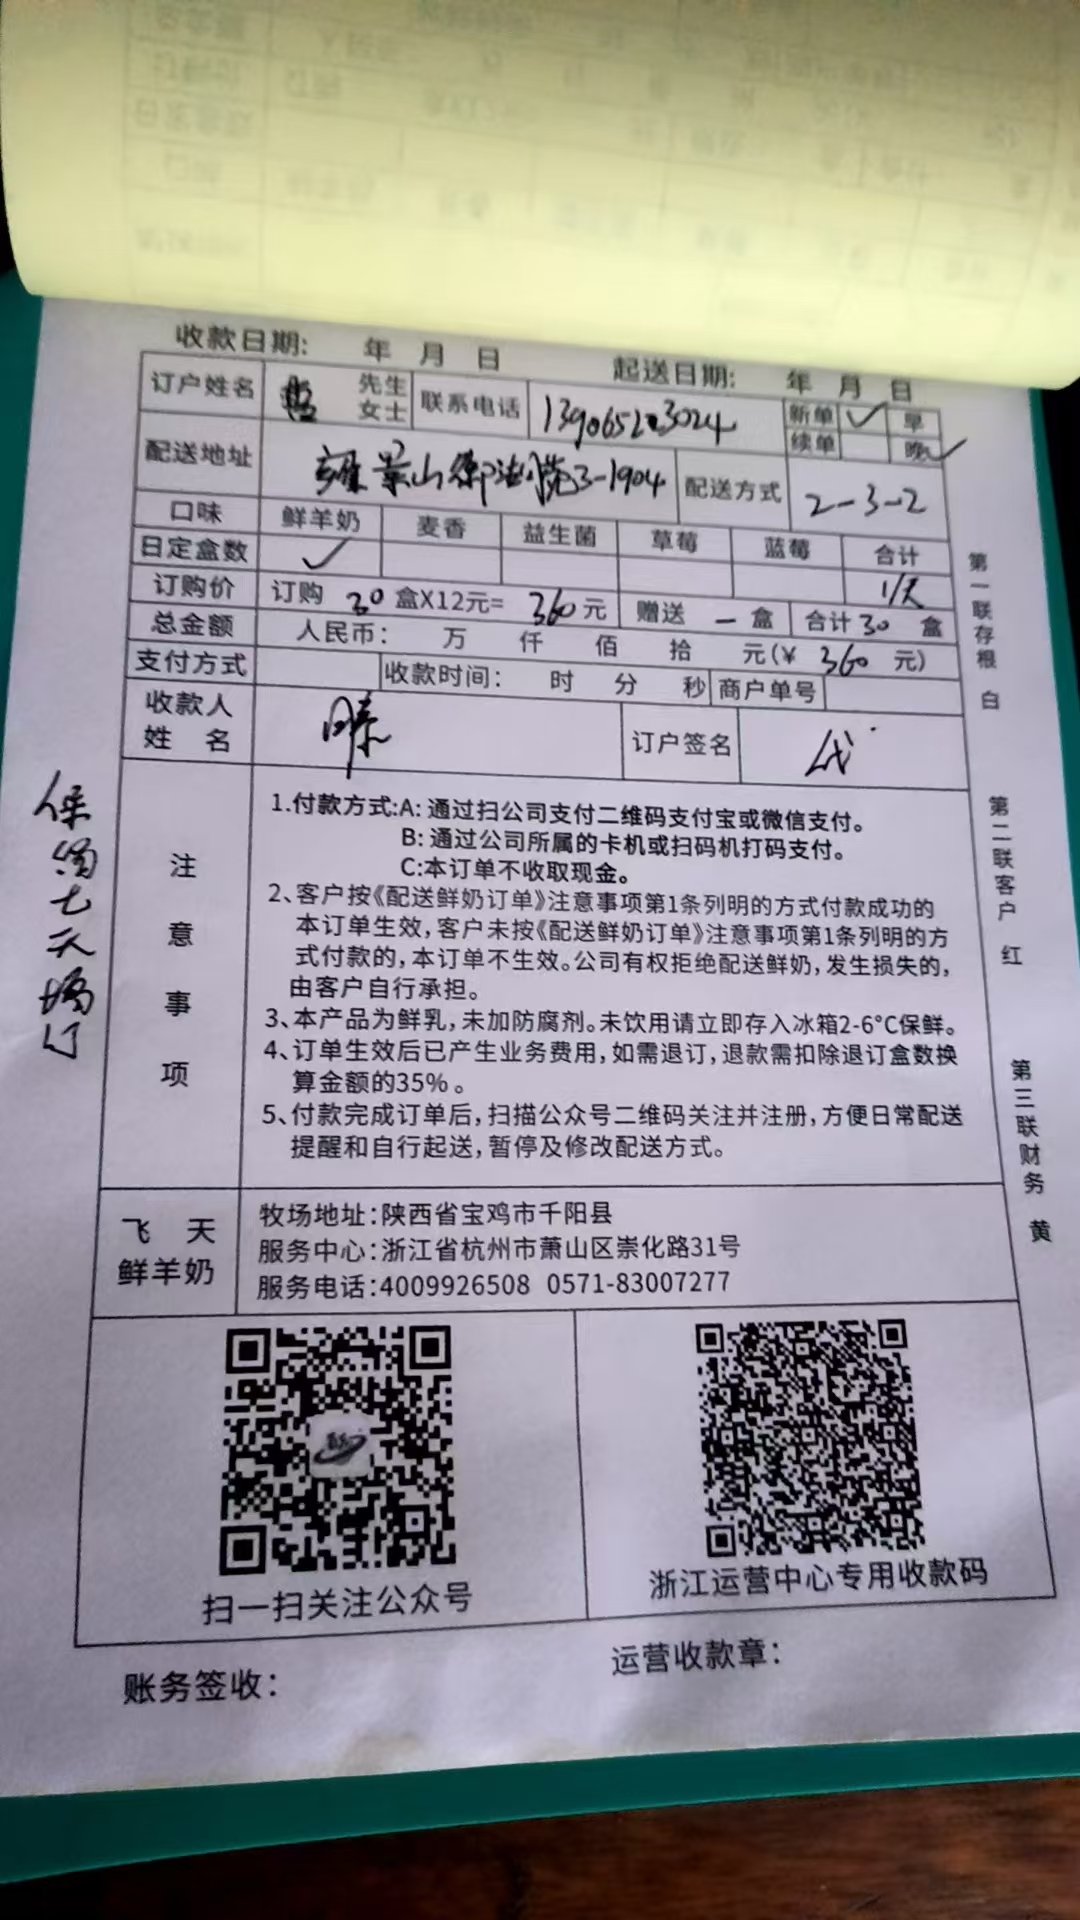 收款日期: 年 月 日 起送日期: 年 月 日
订户姓名 先生 女士 联系电话 13906523024 新单 ✓ 早
续单 晚 ✓
配送地址 景山御 院3-1904 配送方式 2-3-2
口味 鲜羊奶 麦香 益生菌 草莓 蓝莓 合计
日定盒数 ✓ 1/天
订购价 订购 30 盒X12元= 360 元 赠送 一 盒 合计 30 盒
总金额 人民币: 万 仟 佰 拾 元(¥ 360 元)
支付方式 收款时间: 时 分 秒 商户单号
收款人
姓 名 订户签名
保留七天 订
注意事项
1.付款方式:A: 通过扫公司支付二维码支付宝或微信支付。
B: 通过公司所属的卡机或扫码机打码支付。
C:本订单不收取现金。
2、客户按《配送鲜奶订单》注意事项第1条列明的方式付款成功的
本订单生效,客户未按《配送鲜奶订单》注意事项第1条列明的方
式付款的,本订单不生效。公司有权拒绝配送鲜奶,发生损失的,
由客户自行承担。
3、本产品为鲜乳,未加防腐剂。未饮用请立即存入冰箱2-6°C保鲜。
4、订单生效后已产生业务费用,如需退订,退款需扣除退订盒数换
算金额的35%。
5、付款完成订单后,扫描公众号二维码关注并注册,方便日常配送
提醒和自行起送,暂停及修改配送方式。
飞 天
鲜羊奶
牧场地址:陕西省宝鸡市千阳县
服务中心:浙江省杭州市萧山区崇化路31号
服务电话:4009926508 0571-83007277
扫一扫关注公众号
浙江运营中心专用收款码
账务签收:
运营收款章:
第一联存根 白
第二联客户 红
第三联财务 黄